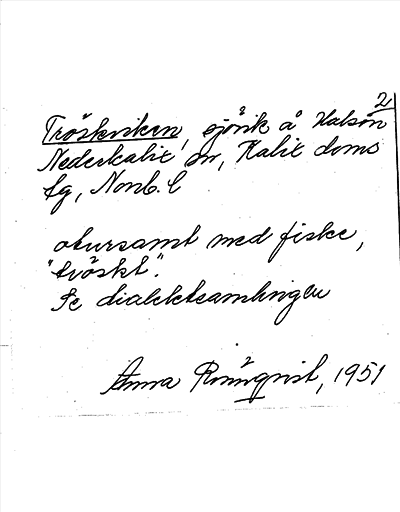 2
Tröskviken, sjövik å Halsön
Nederkalix sn, Kalix doms
lg, Norrb. l
otursamt med fiske,
"tröskt".
Se dialektsamlingen
Anna Rönnqvist, 1951